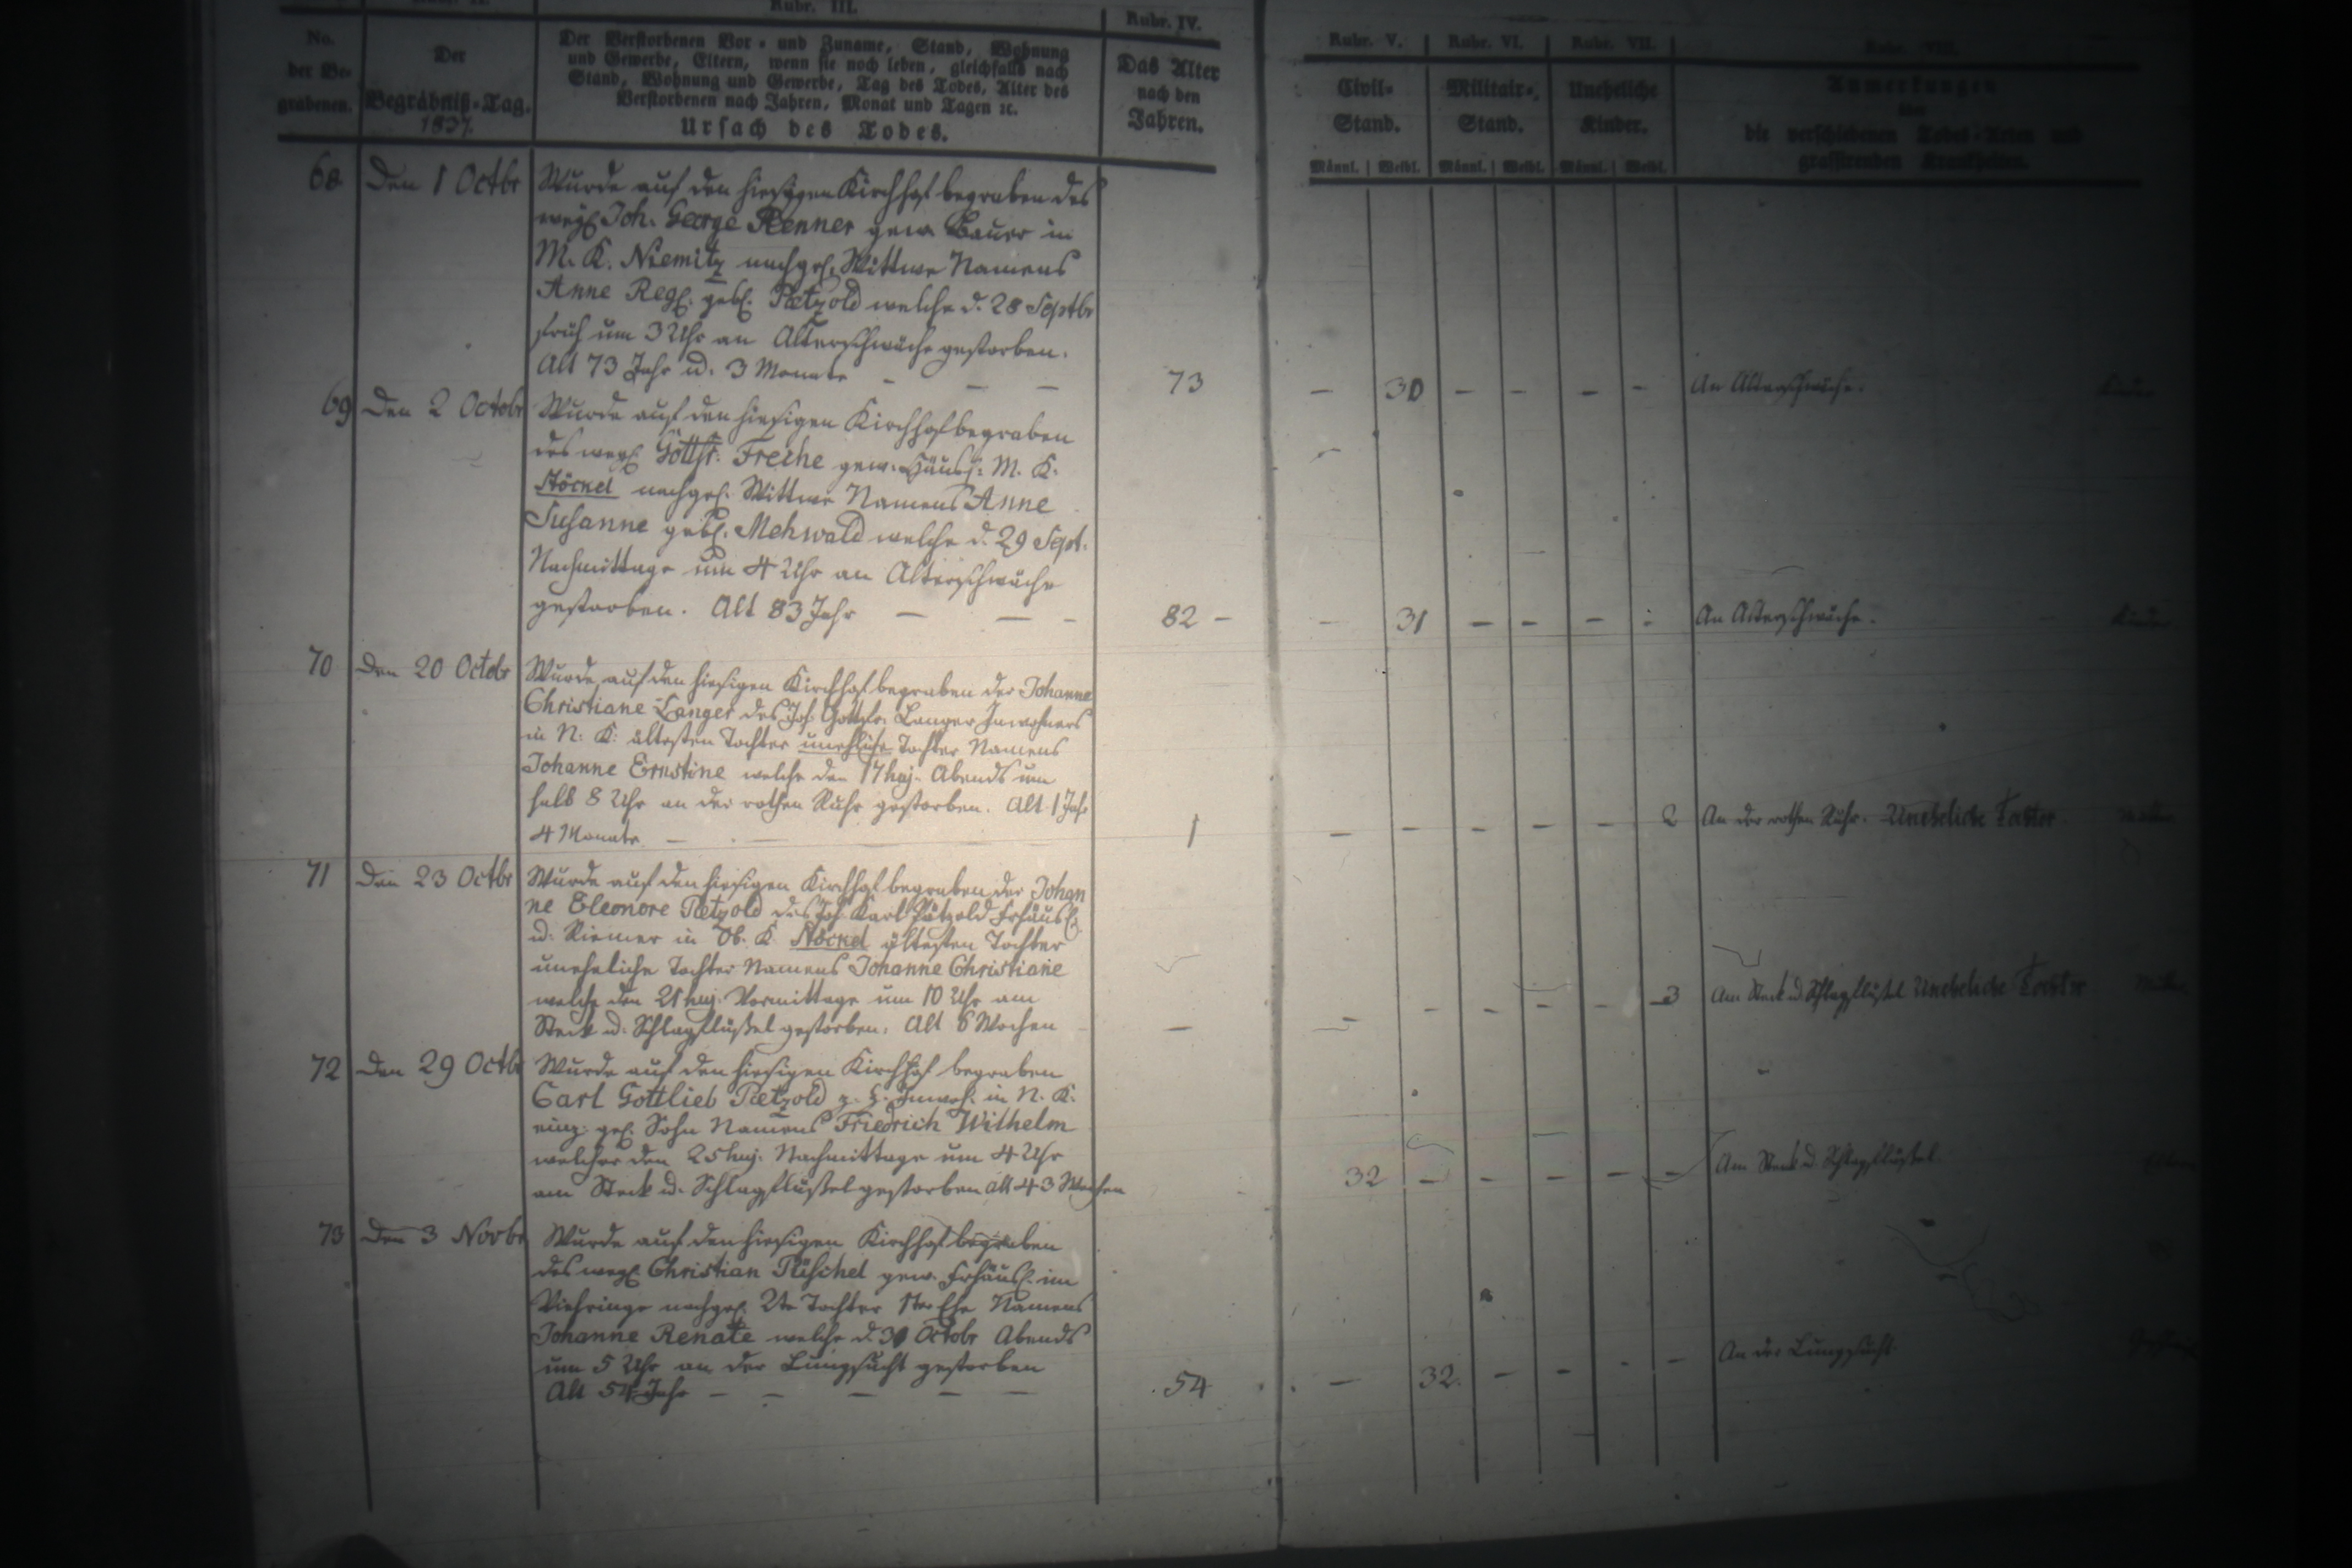 Rubr. III.
Rubr. IV.
No.
der Be-
grabenen.
Der
Begräbniß-Tag.
1837.
Der Verstorbenen Vor- und Zuname, Stand, Wohnung
und Gewerbe, Eltern, wenn sie noch leben, gleichfalls nach
Stand, Wohnung und Gewerbe, Tag des Todes, Alter des
Verstorbenen nach Jahren, Monat und Tagen ꝛc.
Ursach des Todes.
Das Alter
nach den
Jahren.
Rubr. V.
Rubr. VI.
Rubr. VII.
Rubr. VIII.
Civil-
Stand.
Militair-
Stand.
Uneheliche
Kinder.
Anmerkungen
über
die verschiedenen Todes-Arten und
grassirenden Krankheiten.
Männl. Weibl. Männl. Weibl. Männl. Weibl.
68 Den 1 Octbr Wurde auf den hiesigen Kirchhof begraben des
weyl. Joh. George Renner gew. Bauer in
M. K. Niemitz nachgel. Wittwe Namens
Anne Regl. gebl. Pætzold welche d. 28 Septbr
früh um 3 Uhr an Altersschwäche gestorben.
Alt 73 Jahr u. 3 Monate - - - 73 - 30 - - - - An Altersschwäche.
69 Den 2 Octobr Wurde auf den hiesigen Kirchhof begraben
des weyl. Gottfr. Freche gew. Häusl. M. K.
Stöckel nachgel. Wittwe Namens Anne
Susanne gebl. Mehwald welche d. 29 Sept.
Nachmittage um 4 Uhr an Altersschwäche
gestorben. Alt 83 Jahr - - - 82 - - 31 - - - - An Altersschwäche.
70 Den 20 Octobr Wurde auf den hiesigen Kirchhof begraben der Johanne
Christiane Langer des Joh. Gottfr. Langer Inwohners
in N. K. ältesten Tochter uneheliche Tochter Namens
Johanne Ernstine welche den 17 huj. Abends um
halb 8 Uhr an der rothen Ruhr gestorben. Alt 1 Jahr
4 Monate - - 1 - - - - - 2 An der rothen Ruhr. Uneheliche Tochter
71 Den 23 Octbr Wurde auf den hiesigen Kirchhof begraben der Johan
ne Eleonore Pætzold des Joh. Karl Pätzold Frhäusl.
u. Riemer in Ob. K. Stöckel ältesten Tochter
uneheliche Tochter Namens Johanne Christiane
welche den 21 huj. Vormittage um 10 Uhr am
Steck u. Schlagflüßel gestorben. Alt 6 Wochen - - - - - - 3 Am Steck u. Schlagflüßel Uneheliche Tochter
72 Den 29 Octbr Wurde auf den hiesigen Kirchhof begraben
Carl Gottlieb Pætzold z. Z. Inwoh. in N. K.
einz. gel. Sohn Namens Friedrich Wilhelm
welcher den 25 huj. Nachmittage um 4 Uhr
am Steck u. Schlagflüßel gestorben alt 43 Wochen 32 - - - - - Am Steck u. Schlagflüßel
73 Den 3 Novbr Wurde auf den hiesigen Kirchhof begraben
des weyl. Christian Püschel gew. Frhäusl. im
Viehringe nachgel. 2te Tochter 1ter Ehe Namens
Johanne Renate welche d. 31 Octobr Abends
um 5 Uhr an der Lungsucht gestorben
Alt 54 Jahr - - - - - 54 - 32 - - - - An der Lungsucht.